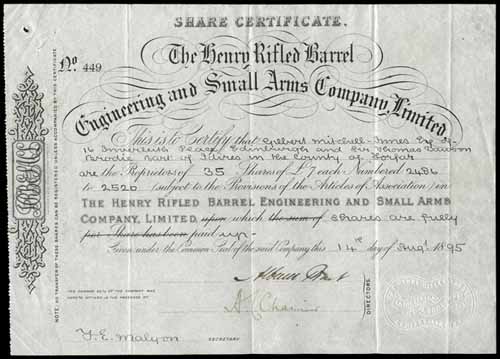 SHARE CERTIFICATE.
No. 449
The Henry Rifled Barrel
Engineering and Small Arms Company, Limited
This is to Certify that Gilbert Mitchell-Innes Esq of
16 Inverleith Place, Edinburgh and Sir Thomas Dawson
Brodie Bart of Idvies in the County of Forfar
are the Proprietors of 35 Shares of £1 each Numbered 2486
to 2520 (subject to the Provisions of the Articles of Association) in
THE HENRY RIFLED BARREL ENGINEERING AND SMALL ARMS
COMPANY, LIMITED, upon which the sum of shares are fully
per Share has been paid up.
Given under the Common Seal of the said Company this 14th day of Augt 1895
DIRECTORS
THE COMMON SEAL OF THE COMPANY WAS
HERETO AFFIXED IN THE PRESENCE OF
F. E. Malyon SECRETARY
NOTE. NO TRANSFER OF THESE SHARES CAN BE REGISTERED UNLESS ACCOMPANIED BY THIS CERTIFICATE.